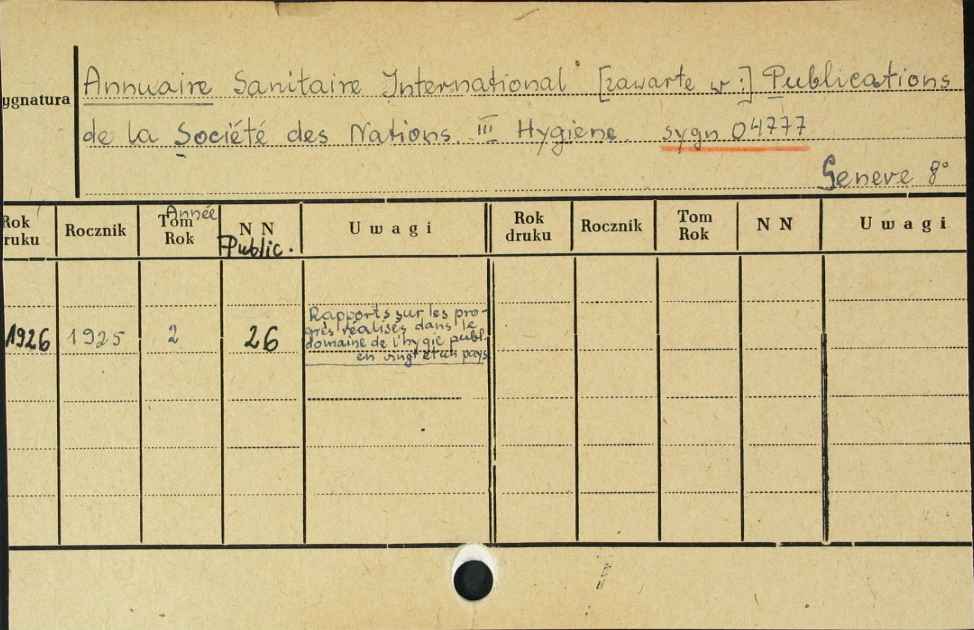 Annuaire Sanitaire International [zawarte w:] Publications
ygnatura
de la Société des Nations. III Hygiene. sygn 04777
Geneve 8°
Rok druku Rocznik Tom Année Rok N N Public. Uwagi Rok druku Rocznik Tom Rok N N Uwagi
Rapports sur les pro-
grès réalisés dans le
1926 1925 2 26 domaine de l'hygie publ.
en vingt et un pays